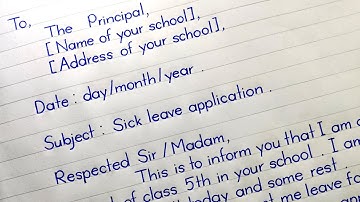 To,
The Principal,
[Name of your school],
[Address of your school],
Date : day/month/year .
Subject : Sick leave application .
Respected Sir/Madam,
This is to inform you that I am a
of class 5th in your school . I am
today and some rest .
me leave for